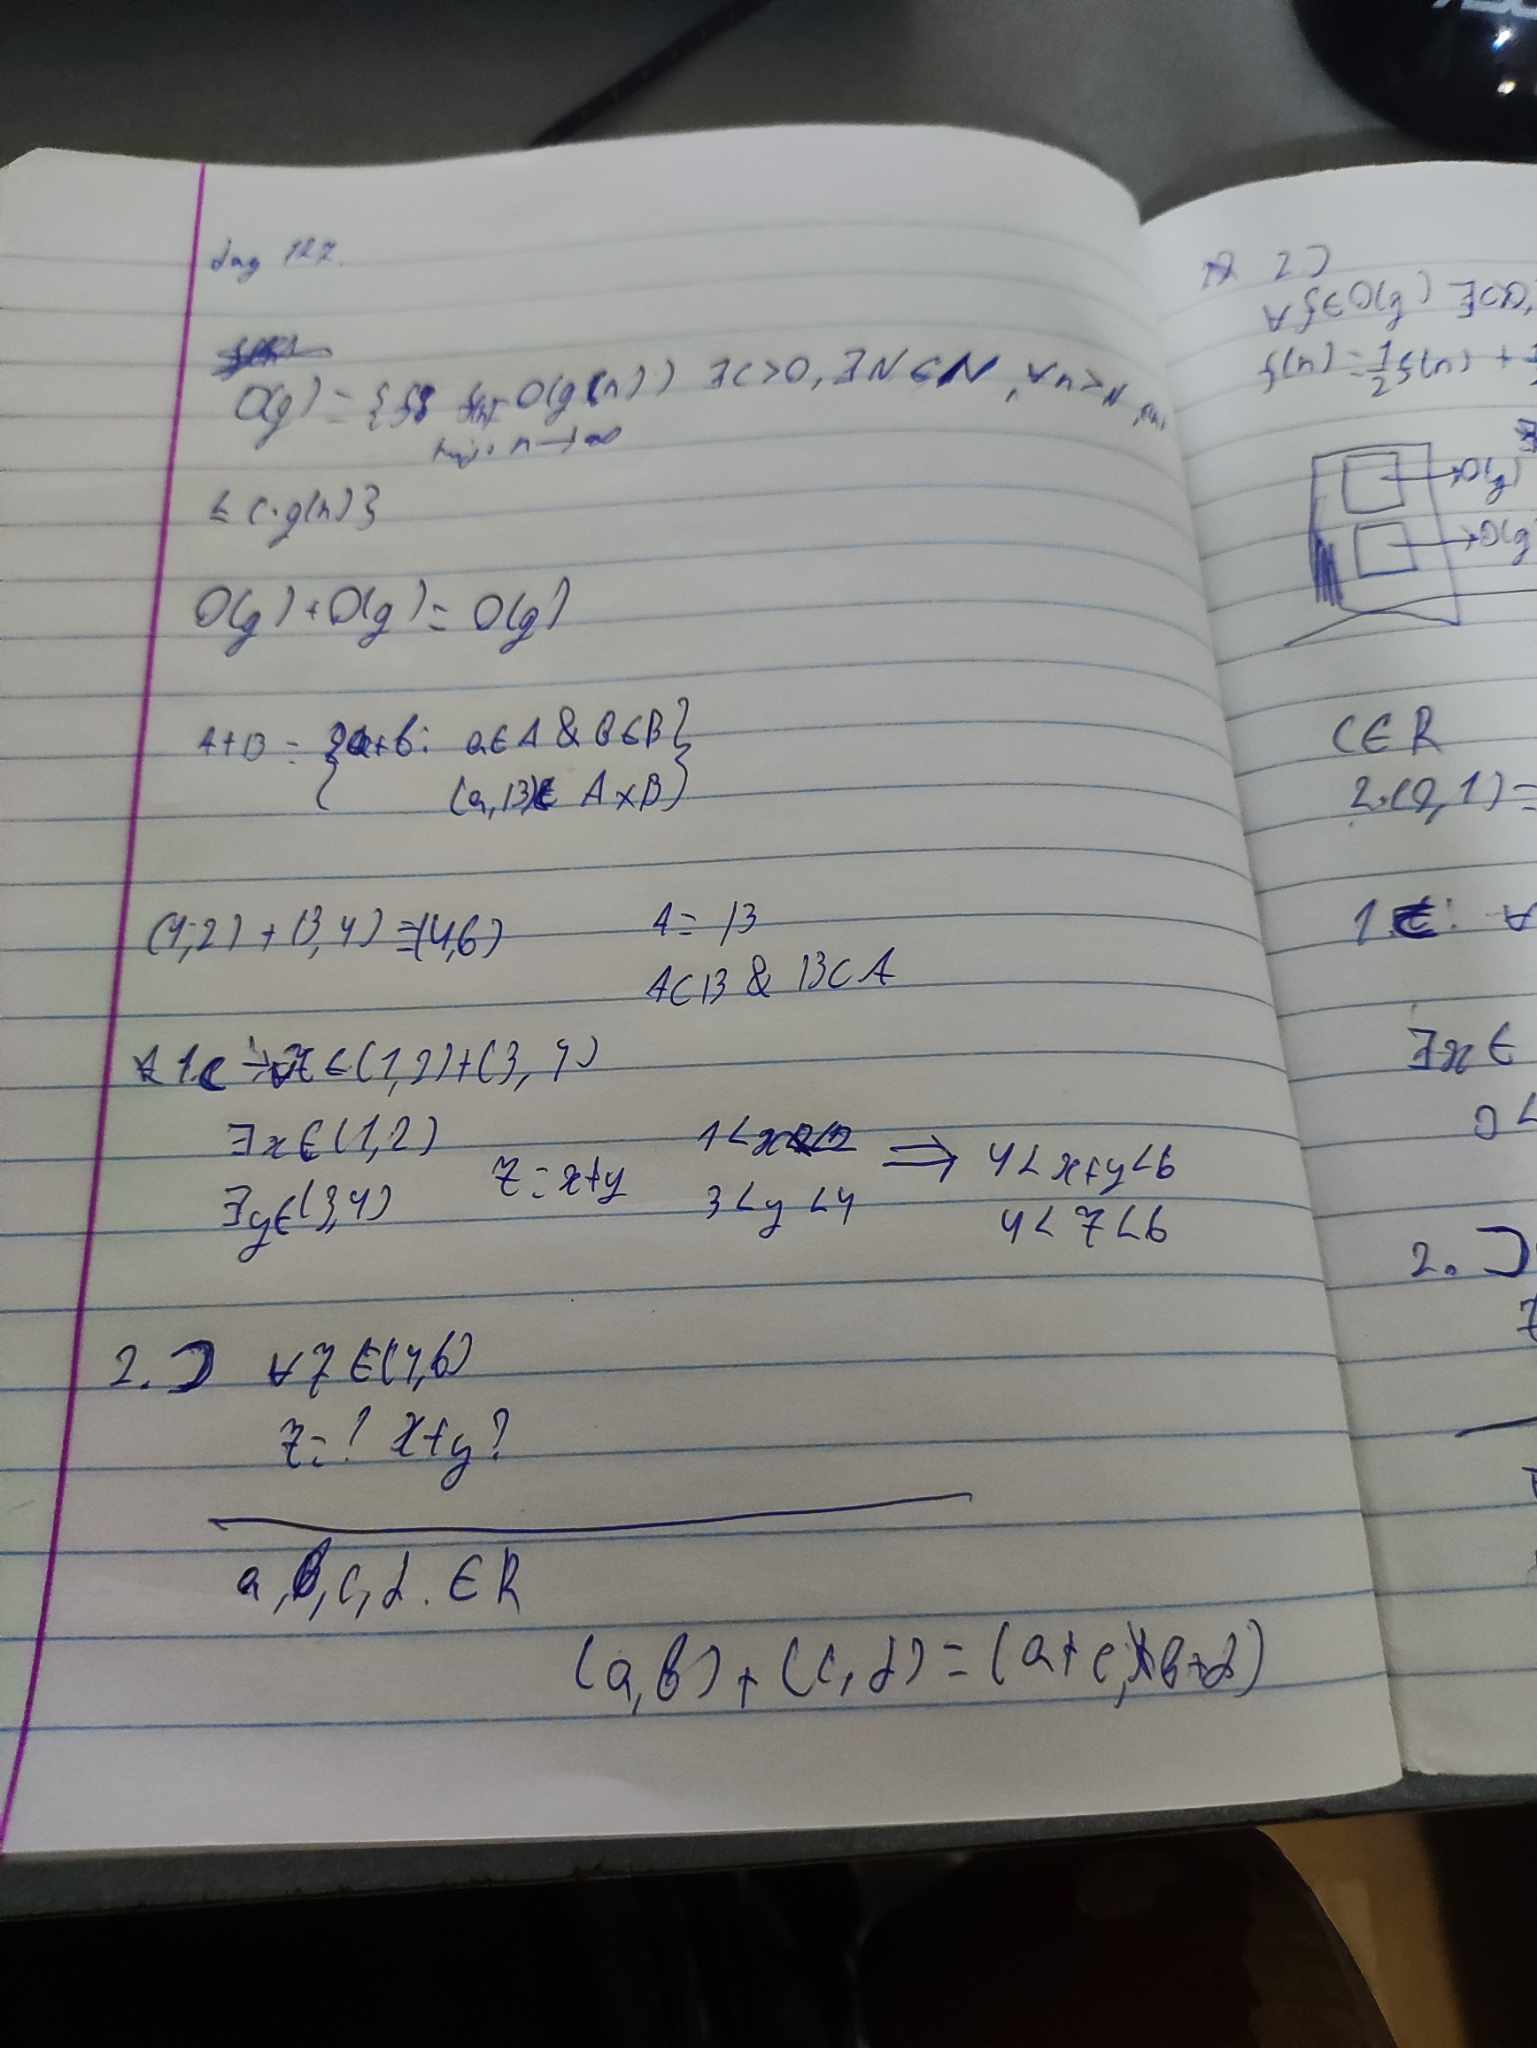 O(g) = {f: f(n) = O(g(n)) ∃C>0, ∃N∈N, ∀n>N
n→∞
≤ C·g(n)}
O(g)+O(g)= O(g)
A+B = {a+b: a∈A & B∈B}
(a,B)∈ A×B
(1,2) + (3,4) =(4,6) A= B
A⊂B & B⊂A
1.⊂ : ∀z∈(1,2)+(3,4)
∃x∈(1,2) 1<x<2 ⟹ 4<x+y<6
∃y∈(3,4) z=x+y 3<y<4 4<z<6
2.⊃ ∀z∈(4,6)
z=? x+y?
a,b,c,d. ∈R
(a,b)+(c,d)=(a+c, b+d)
2)
∀f∈O(g) ∃C>0,
f(n)=1/2 f(n) +
O(g)
O(g
C∈R
2·(0,1)=
1.⊂: ∀
∃x∈
0<
2.⊃